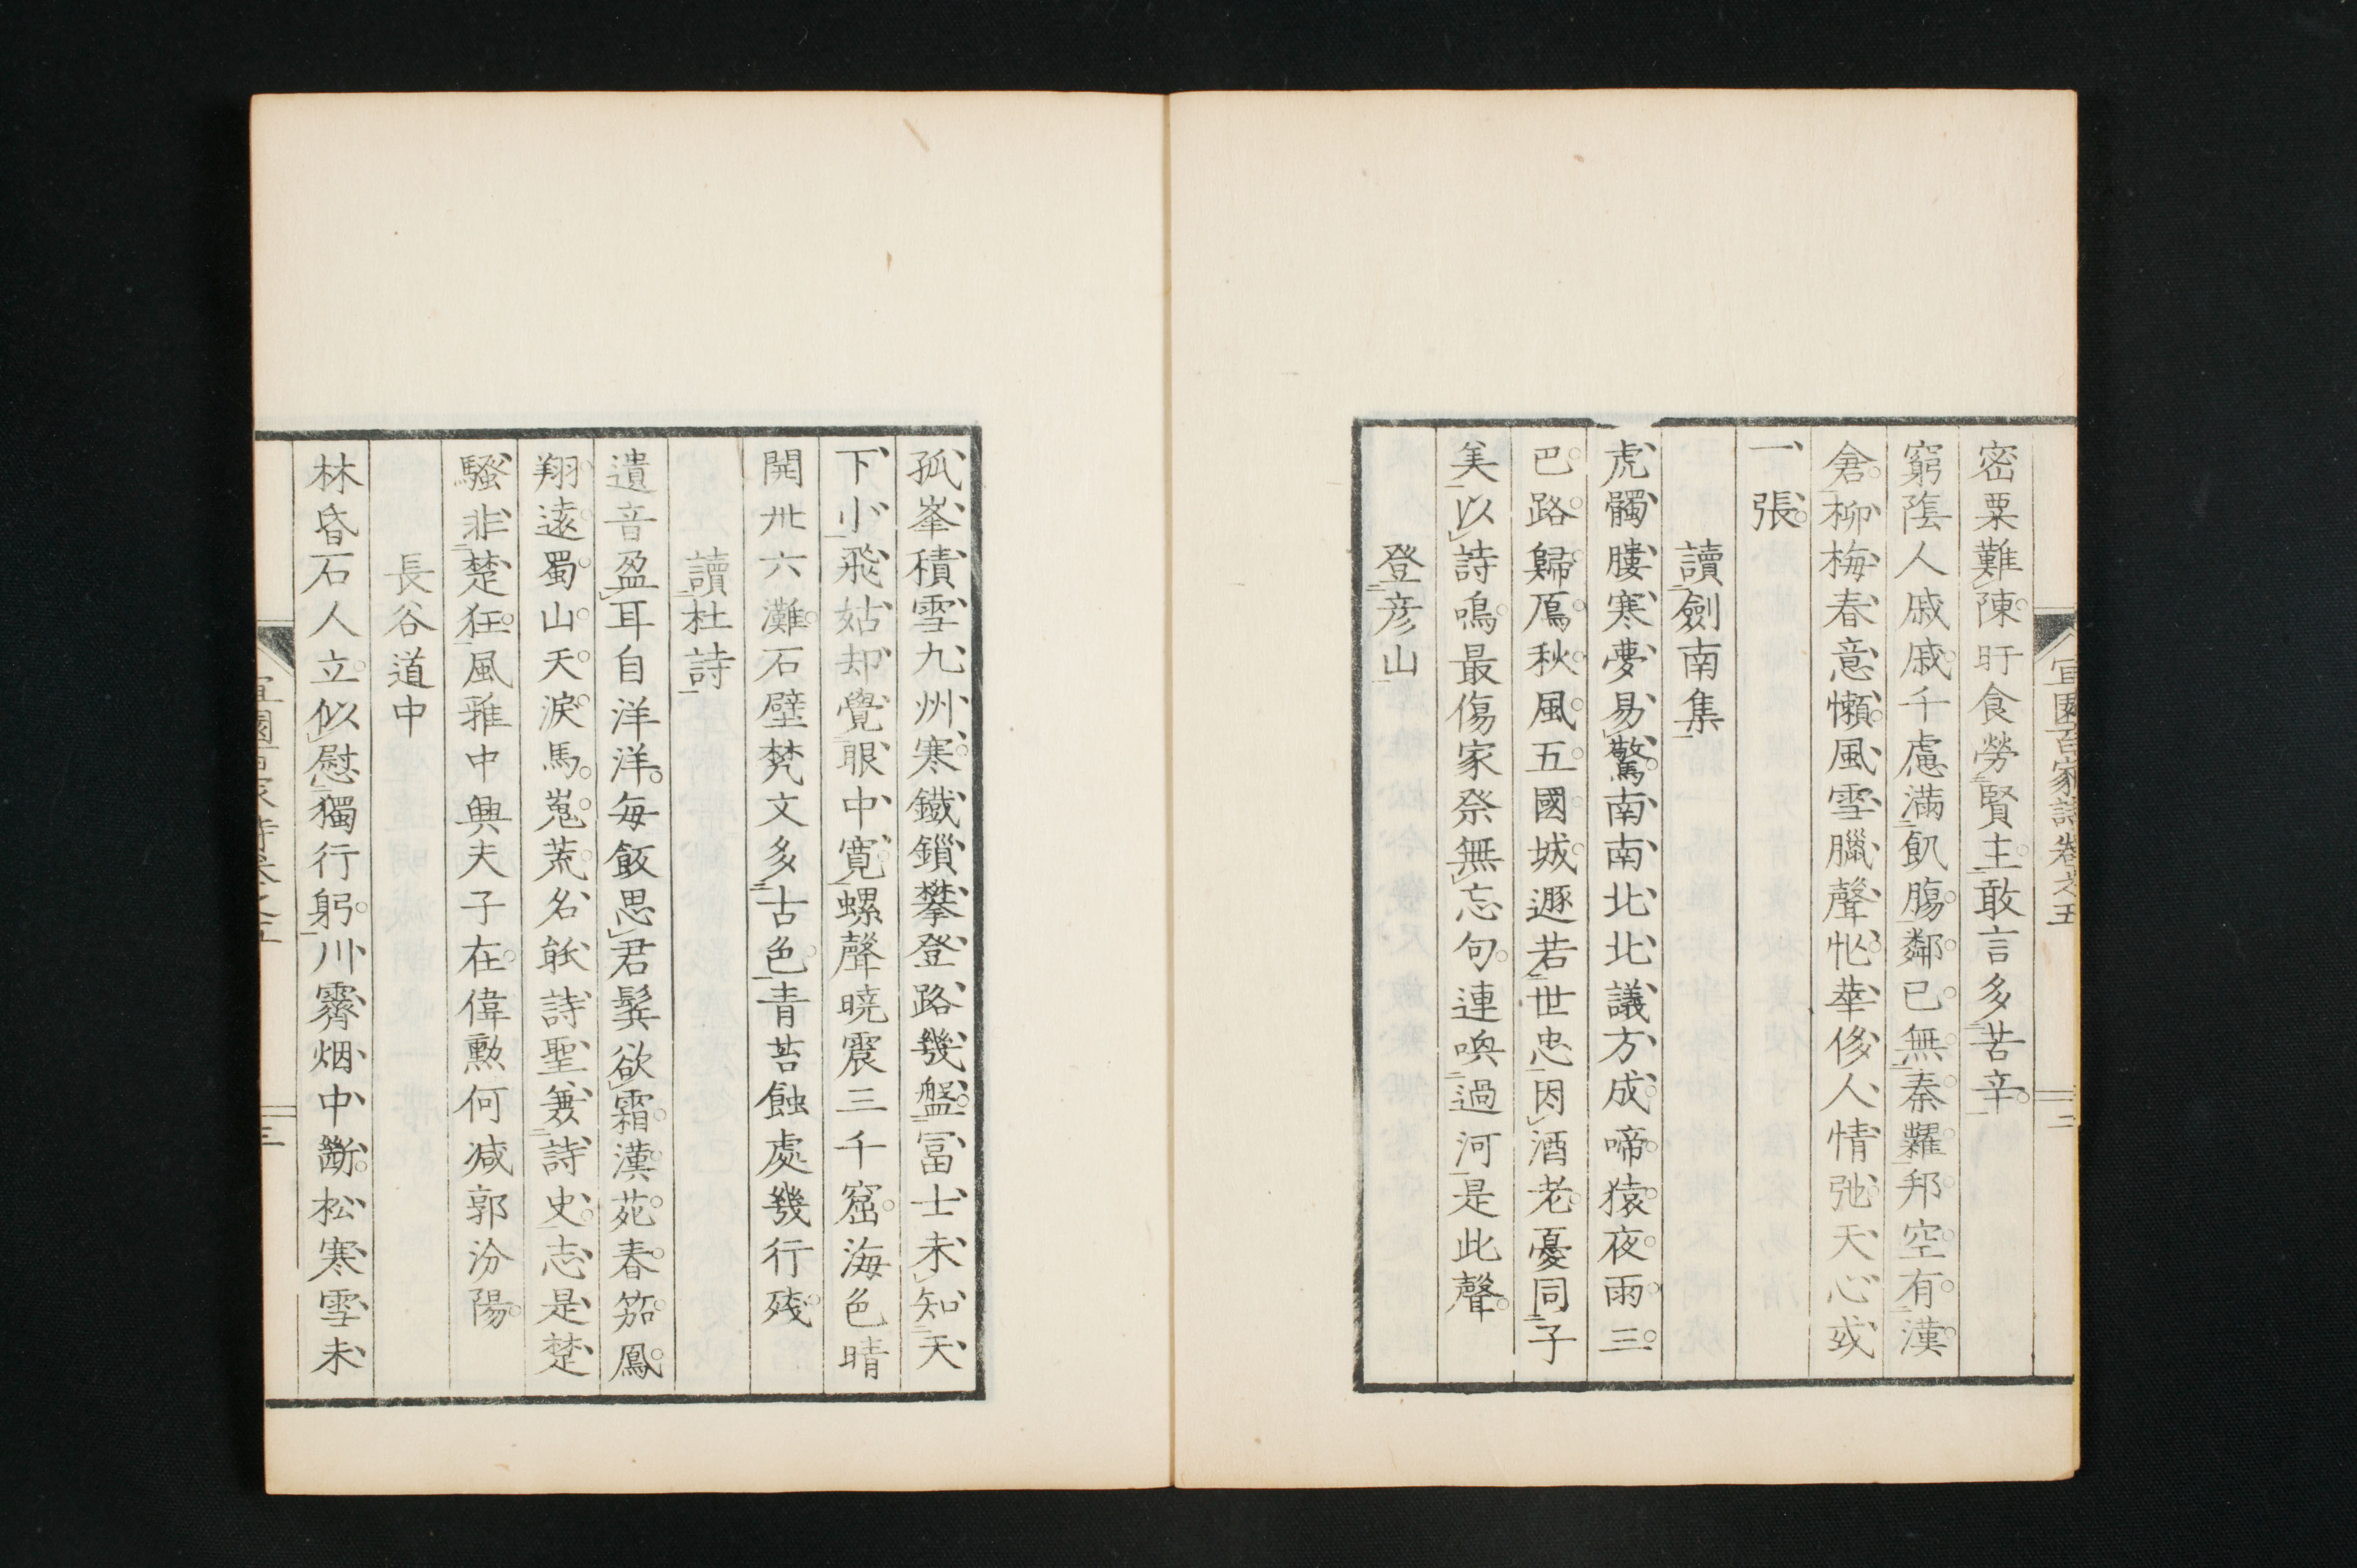 宜園百家詩卷之五 二
密粟難陳旰食勞賢主敢言多苦辛
窮陰人戚戚千慮滿飢膓鄰已無秦糶邦空有漢
倉柳梅春意懶風雪臘聲忙華侈人情弛天心或
一張
讀劍南集
虎髑髏寒夢易驚南南北北議方成啼猿夜雨三
巴路歸鴈秋風五國城遯若世忠因酒老憂同子
美以詩鳴最傷家祭無忘句連喚過河是此聲
登彦山
孤峯積雪九州寒鐵鎖攀登路幾盤冨士未知天
下小飛姑却覺眼中寛螺聲曉震三千窟海色晴
開卅六灘石壁梵文多古色青苔蝕處幾行殘
讀杜詩
遺音盈耳自洋洋每飯思君鬂欲霜漢苑春笳鳳
翔遠蜀山天淚馬嵬荒名能詩聖兼詩史志是楚
騷非楚狂風雅中興夫子在偉勲何減郭汾陽
長谷道中
林昏石人立似慰獨行躬川霽烟中斷松寒雪未
宜園百家詩卷之五 三